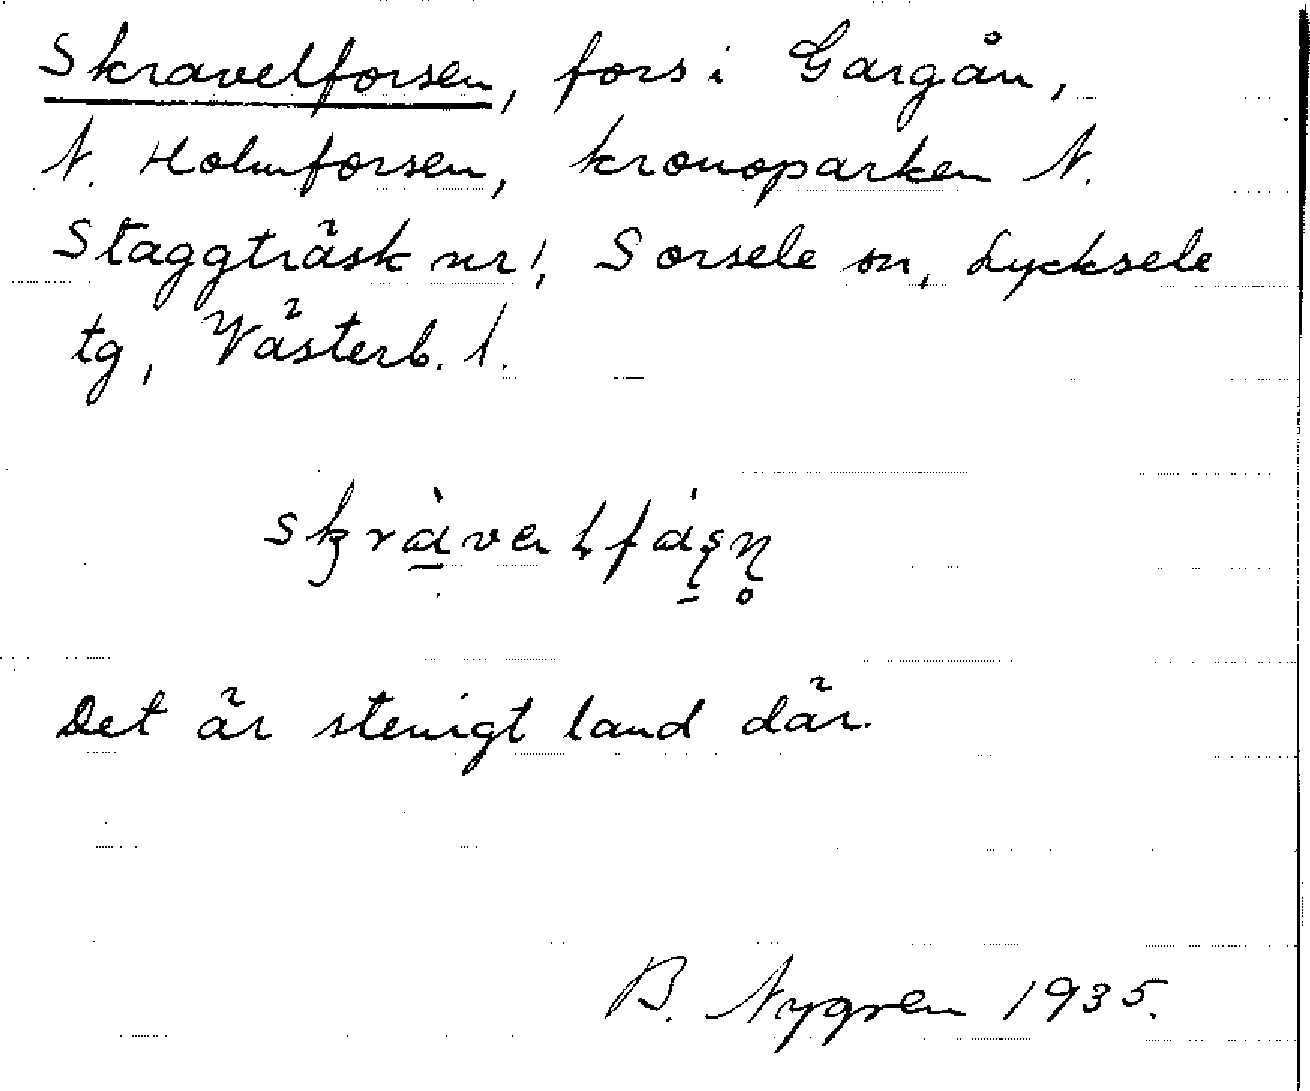 Skravelforsen, fors i Gargån,
N. Holmforsen, kronoparken N.
Staggträsk nr 1, Sorsele sn, Lycksele
tg, Västerb. l.
Det är stenigt land där.
B. Nygren 1935.